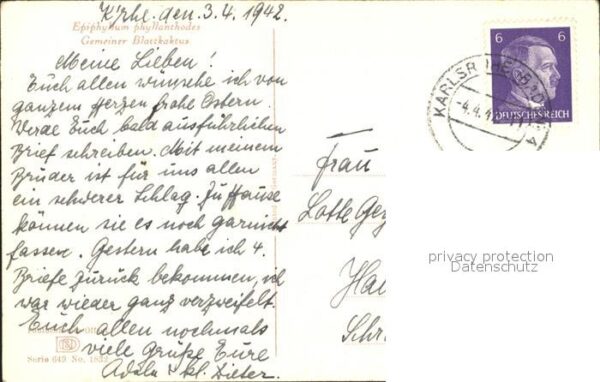 K'rhe. den 3.4.1942.
Epiphyllum phyllanthodes
Gemeiner Blattkaktus
Meine Lieben!
Euch allen wünsche ich von
ganzem Herzen frohe Ostern.
Werde Euch bald ausführlichen
Brief schreiben. Mit meinem
Bruder ist für uns allen
ein schwerer Schlag. Zu Hause
können sie es noch garnicht
fassen. Gestern habe ich 4
Briefe zurück bekommen, ich
war wieder ganz verzweifelt.
Euch allen nochmals
viele Grüße Eure
Adele u. kl. Dieter.
Serie 649 No.
6 6
DEUTSCHES REICH
KARLSRUHE
Frau
Lotte
privacy protection
Datenschutz